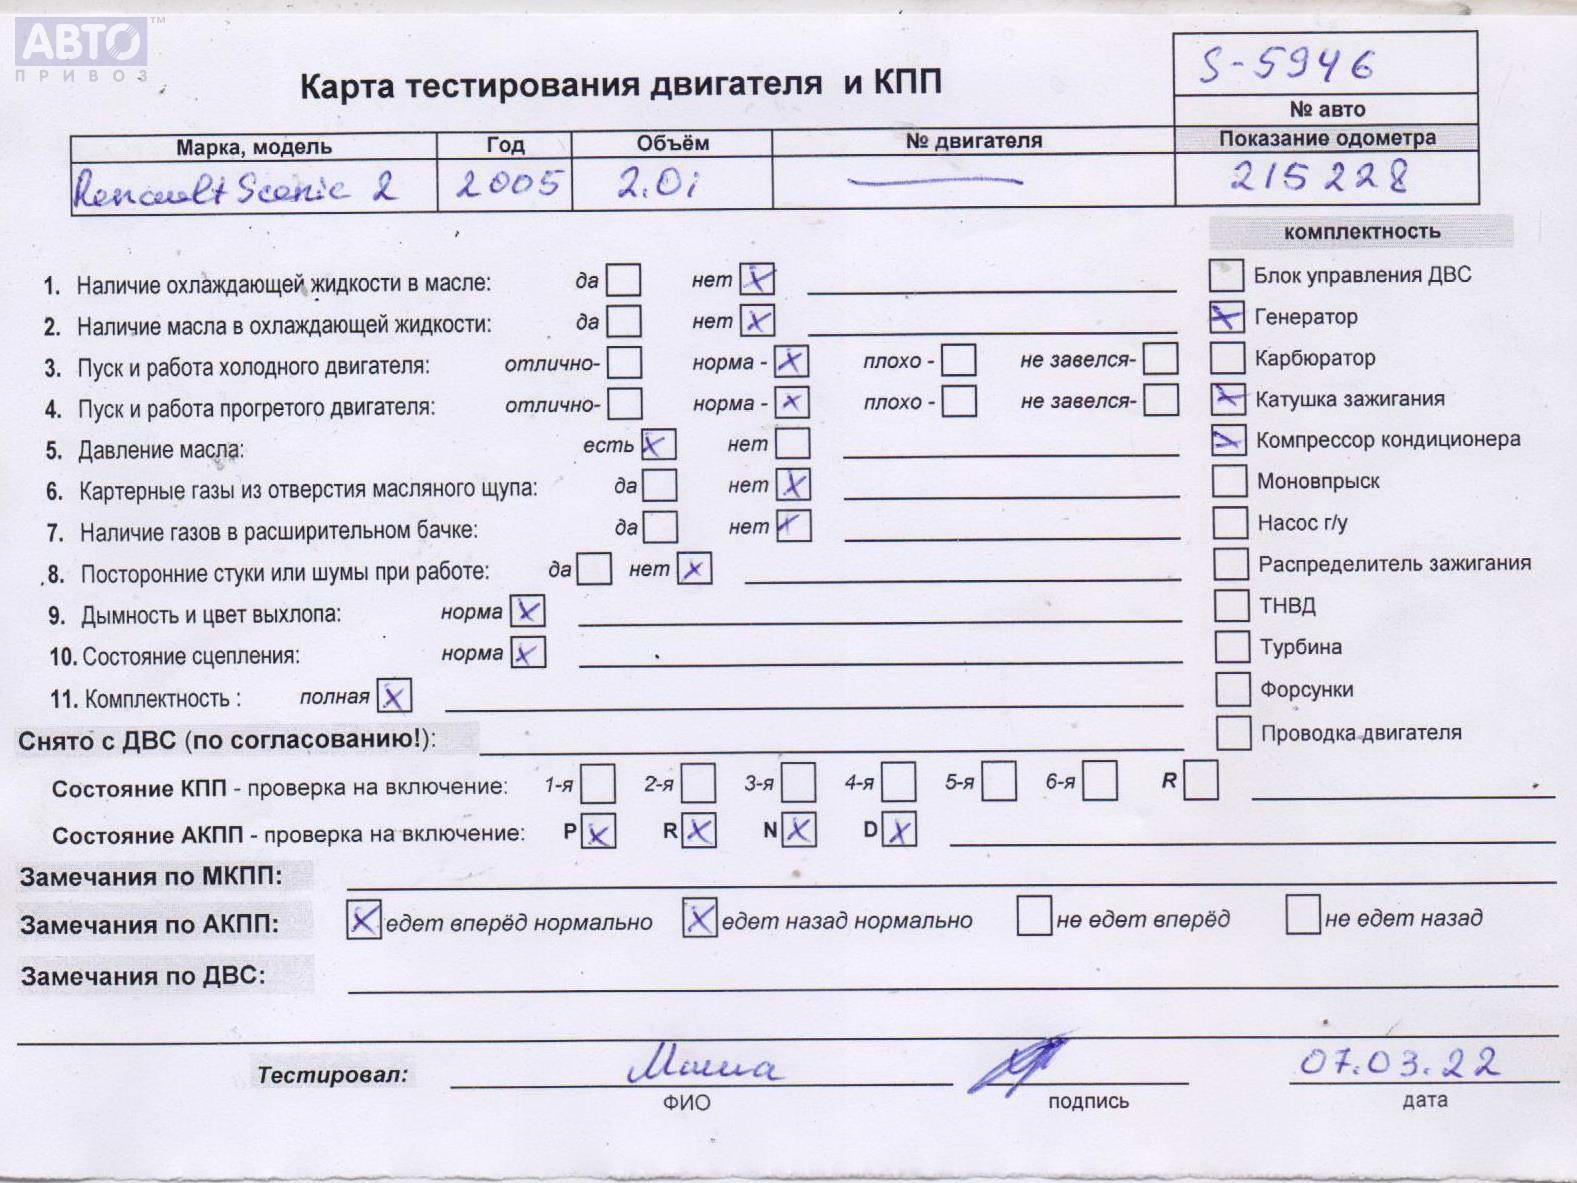 АВТО™
ПРИВОЗ
Карта тестирования двигателя и КПП
S-5946
№ авто
Марка, модель Год Объём № двигателя Показание одометра
Renault Scenic 2 2005 2.0i — 215228
комплектность
1. Наличие охлаждающей жидкости в масле: да нет X
Блок управления ДВС
2. Наличие масла в охлаждающей жидкости: да нет X
X Генератор
3. Пуск и работа холодного двигателя: отлично- норма - X плохо - не завелся-
Карбюратор
4. Пуск и работа прогретого двигателя: отлично- норма - X плохо - не завелся-
X Катушка зажигания
5. Давление масла: есть X нет
X Компрессор кондиционера
6. Картерные газы из отверстия масляного щупа: да нет X
Моновпрыск
7. Наличие газов в расширительном бачке: да нет X
Насос г/у
8. Посторонние стуки или шумы при работе: да нет X
Распределитель зажигания
9. Дымность и цвет выхлопа: норма X
ТНВД
10. Состояние сцепления: норма X
Турбина
11. Комплектность : полная X
Форсунки
Снято с ДВС (по согласованию!):
Проводка двигателя
Состояние КПП - проверка на включение: 1-я 2-я 3-я 4-я 5-я 6-я R
Состояние АКПП - проверка на включение: P X R X N X D X
Замечания по МКПП:
Замечания по АКПП: X едет вперёд нормально X едет назад нормально не едет вперёд не едет назад
Замечания по ДВС:
Тестировал: Миша 07.03.22
ФИО подпись дата